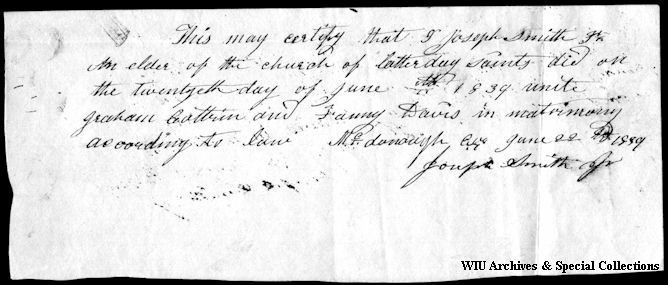 This may certify that I Joseph Smith Jr
An elder of the church of latter day Saints did on
the twentyeth day of June 1839 unite
graham Cottrin and Fanny Davis in matrimony
according to law McDonough Co June 22 1839
Joseph Smith Jr
WIU Archives & Special Collections